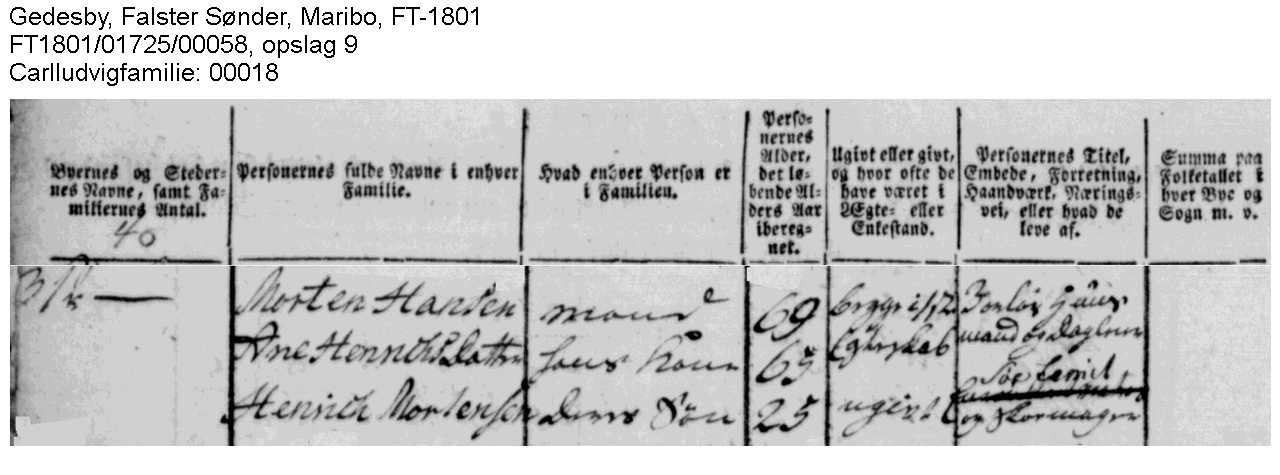 Gedesby, Falster Sønder, Maribo, FT-1801
FT1801/01725/00058, opslag 9
Carlludvigfamilie: 00018
Byernes og Steder-
nes Navne, samt Fa-
miliernes Antal.
40
Personernes fulde Navne i enhver
Familie.
Hvad enhver Person er
i Familien.
Perso-
nernes
Alder,
det lø-
bende Al-
ders Aar
ibereg-
net.
Ugivt eller givt,
og hvor ofte de
have været i
Ægte- eller
Enkestand.
Personernes Titel,
Embede, Forretning,
Haandværk, Nærings-
vei, eller hvad de
leve af.
Summa paa
Folketallet i
hver Bye og
Sogn m. v.
Morten Hansen mand 69 begge i Jordløs Huus-
Ane Henrichs Datter hans Kone 65 Egteskab mand og Daglejer
Henrich Mortensen Deres Søn 25 ugivt og Skomager